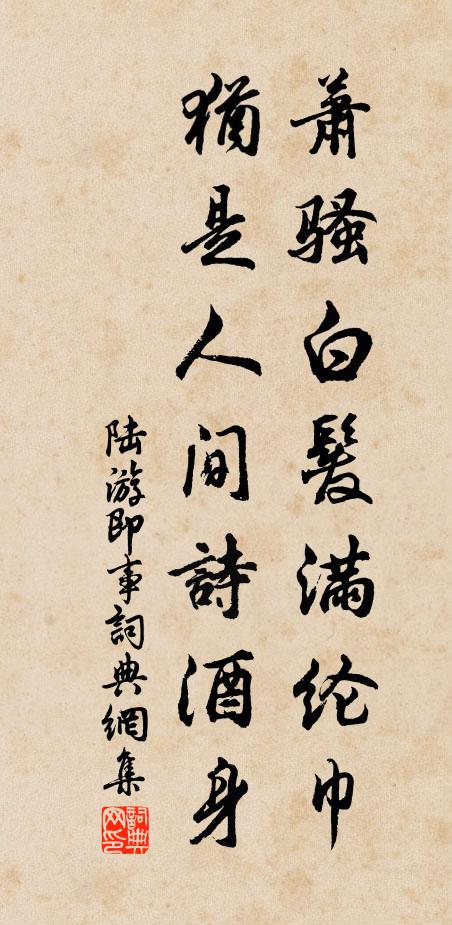 萧骚白髮满纶巾
猶是人间詩酒身
陆游即事詞典網集
詞典
网印